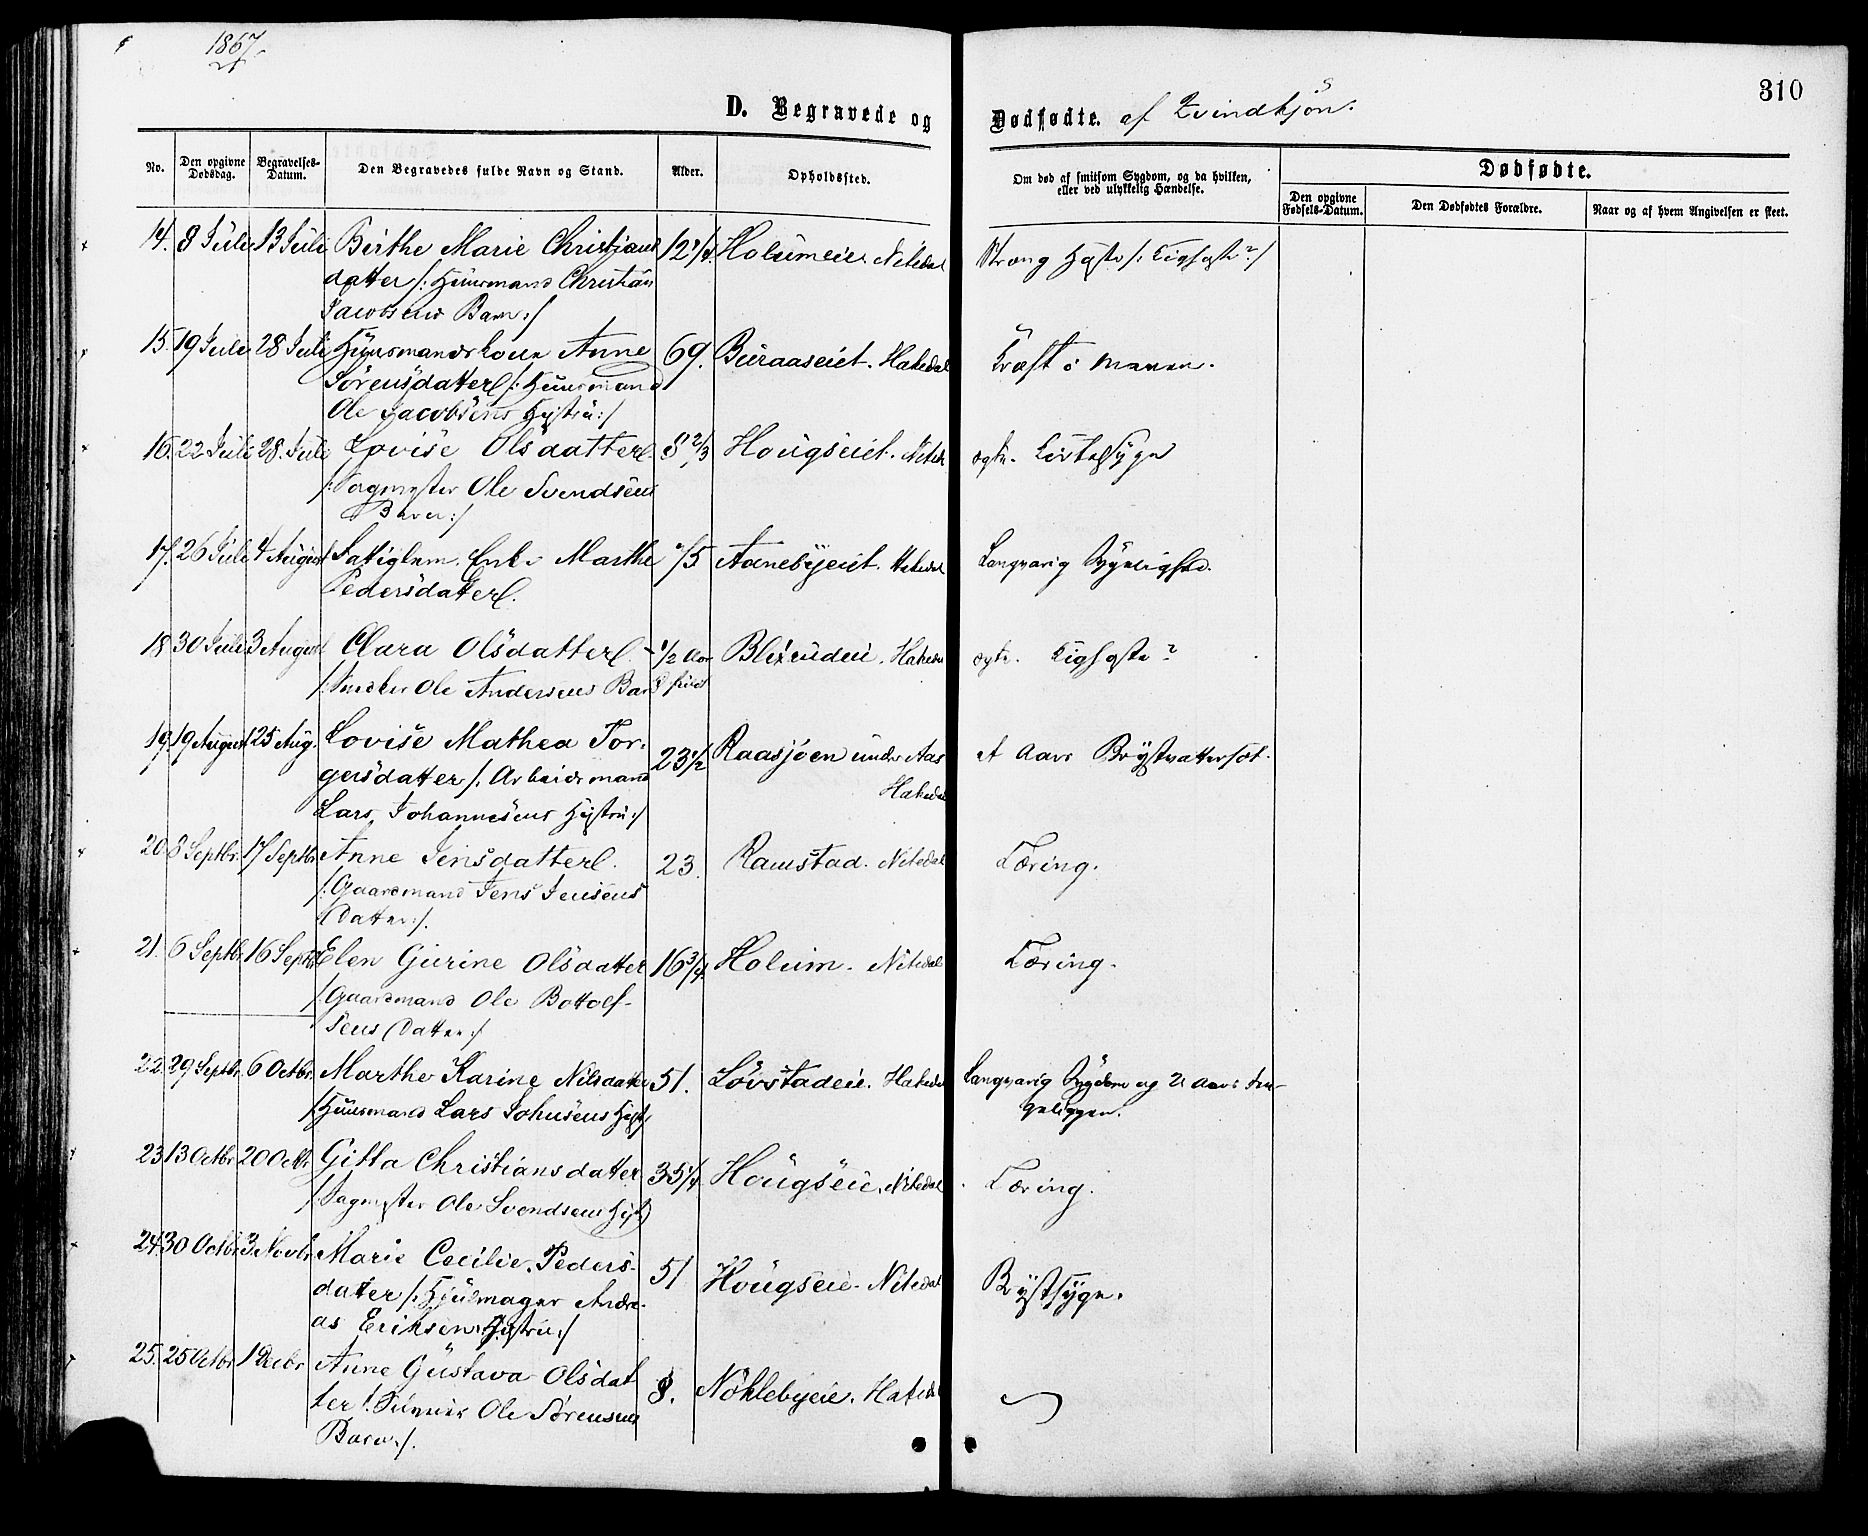 1867
310
D. Begravede og Dødfødte. af Qvindkjøn.
No.
Den opgivne Dødsdag.
Begravelses-Datum.
Den Begravedes fulde Navn og Stand.
Alder.
Opholdssted.
Om død af smitsom Sygdom, og da hvilken, eller ved ulykkelig Hændelse.
Dødfødte.
Den opgivne Fødsels-Datum.
Den Dødfødtes Forældre.
Naar og af hvem Angivelsen er skeet.
14. 8 Juli 13 Juli Birthe Marie Christians 12 1/4. Holumeie. Nitedal Strong Hoste /: Kighoste? :/
datter /: Huusmand Christian
Jacobsens Barn :/
15. 19 Juli 28 Juli Huusmandskone Anne 69. Buraaseiet. Hakedal Kræft i Maven.
Sørensdatter /: Huusmand
Ole Jacobsens Hustru :/
16. 22 Juli 28. Juli Lovise Olsdatter 8 2/3 Hougseiet. Nited. ægte. Kirtelsyge
/: Sagmester Ole Svendsens
Barn :/
17. 26 Juli 4 August Fattiglem. Enke Marthe 75 Aanebyeiet. Hakedal Langvarig Sygelighed.
Pedersdatter.
18 30 Juli 3 August Clara Olsdatter 1/2 Aar Blexrudeie. Hakedal ægte. Kighoste?
/: Snedker Ole Andersens Barn
19. 19 August 25 Aug. Lovise Mathea Tor- 23 1/2 Raasjøen under Aas et Aars Brystvattersot.
gersdatter /: Arbeidsmand Hakedal
Lars Johannesens Hustru :/
20 8 Septbr. 17 Septbr. Anne Jensdatter. 23. Ramstad. Nitedal Tæring.
/: Gaardmand Jens Jensens
Datter :/.
21. 6 Septbr. 16 Septbr Elen Gurine Olsdatter 16 3/4 Holum. Nitedal Tæring.
/: Gaardmand Ole Bottolf-
sens Datter :/
22 29 Septbr. 6 Octbr. Marthe Karine Nilsdatter 51. Løvstadeie. Hakedal Langvarig Sygdom og 2 Aars Sen-
/: Huusmand Lars Johnsens Hust geliggen.
23 13 Octbr. 20 Octbr Gitta Christiansdatter 35 1/4 Hougseie. Nitedal Tæring.
/: Sagmester Ole Svendsens Hust
24. 30 Octbr 3 Novbr. Marie Cecilie Peders- 51 Hougseie. Nitedal Brystsyge.
datter /: Hjulmager Andre-
as Eriksens Hustru :/
25. 25 Octbr 1 Decbr Anne Gustava Olsdat 8. Nøklebyeie. Hakedal
ter /: Ole Sørensens
Barn :/.